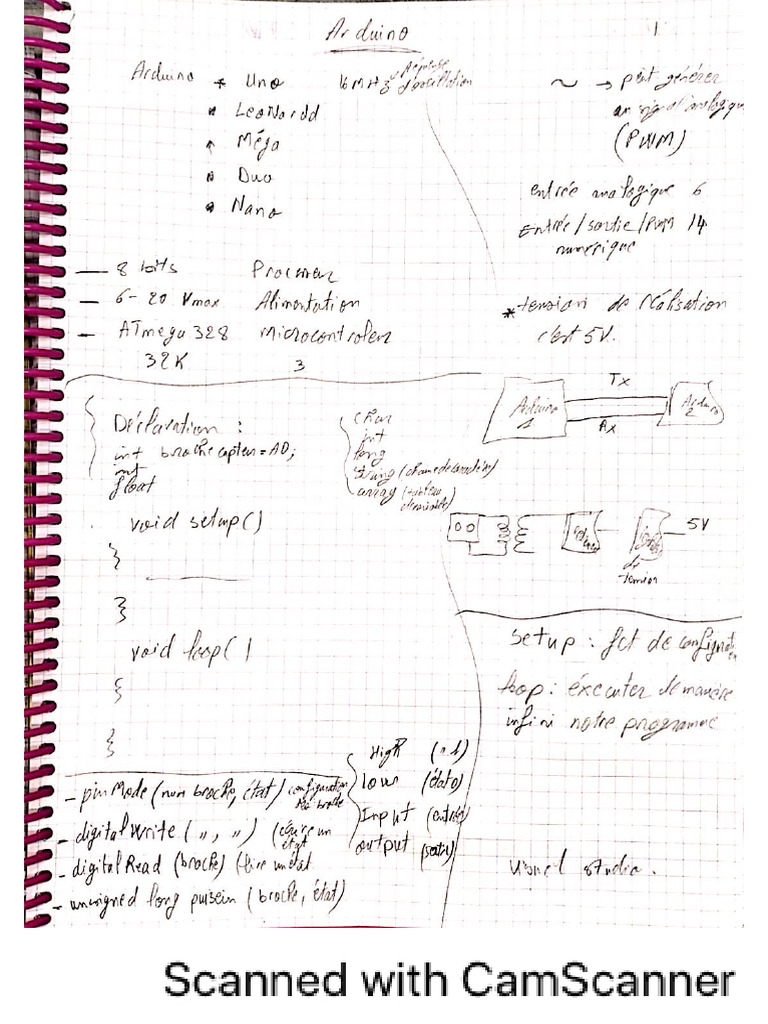 Arduino
1
Arduino * Uno
Leonardd
Méga
Duo
Nano
16 MHz d'oscillation
~ → peut générer
un signal analogique
(PWM)
entrée analogique 6
Entrée/sortie/PWM 14
numérique
— 8 bits
— 6-20 Vmax Alimentation
— ATmega 328 Microcontroleur
32K
3
* tension de réalisation
c'est 5V.
Tx
Arduino 1
Arduino 2
Rx
Déclaration :
int broche capteur = A0;
int
float
char
int
long
string (chaine de caractère)
array (tableau
void setup()
}
}
void loop()
{
}
5V
de
tension
setup : fct de configuration
loop : éxecuter de manière
infini notre programme
High (1)
low (état 0)
Input (entrée)
output (sortie)
- pinMode (num broche, état) configuration
de broche
- digitalWrite (,, ,,) (écrire un
état
- digitalRead (broche) (lire un état
- unsigned long pulsein (broche, état)
studio.
Scanned with CamScanner